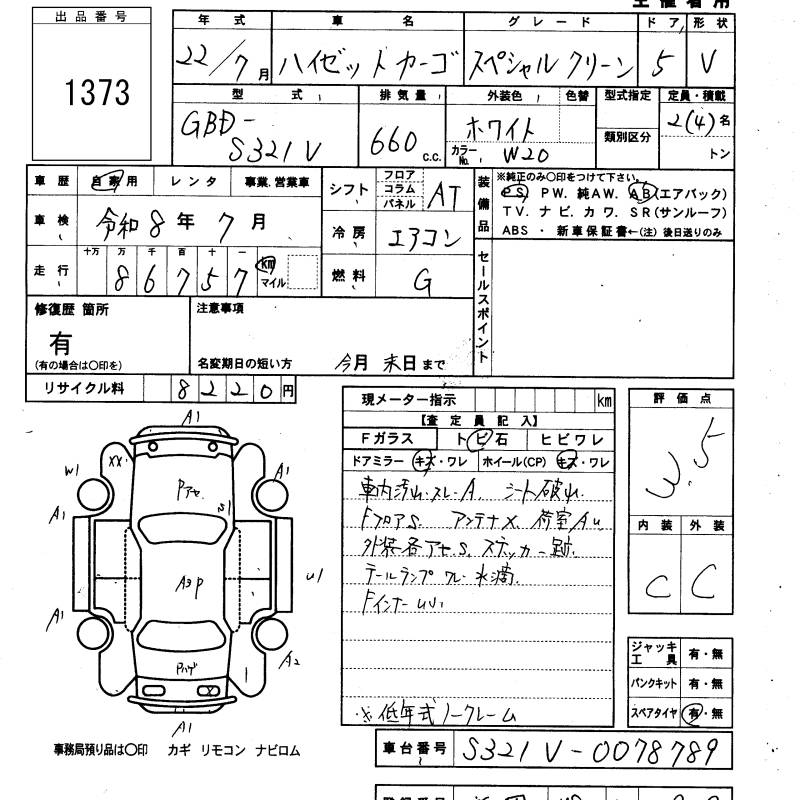 出品番号
1373
年式 車名 グレード ドア 形状
22/7月 ハイゼットカーゴ スペシャルクリーン 5 V
型式 排気量 外装色 色替 型式指定 定員・積載
GBD-S321V 660c.c. ホワイト カラーNo. W20 類別区分 2(4)名 トン
車歴 自家用 レンタ 事業.営業車
車検 令和8年7月
走行 十万 万 千 百 十 一
86757 km マイル
シフト フロア コラム パネル AT
冷房 エアコン
燃料 G
装備品 ※純正のみ〇印をつけて下さい。
PS PW. 純AW. AB(エアバック)
TV. ナビ. カワ. SR(サンルーフ)
ABS ・ 新車保証書←(注) 後日送りのみ
セールスポイント
修復歴 箇所
有
(有の場合は〇印を)
注意事項
名変期日の短い方 今月末日まで
リサイクル料 8220円
現メーター指示 km
【査定員記入】
Fガラス トビ石 ヒビワレ
ドアミラー キズ・ワレ ホイール(CP) キズ・ワレ
車内汚レ.スレ.A. シート破レ.
FフロアS. アンテナX. 荷室AU
外装各アセ.S. ステッカー跡.
テールランプワレ・水滴.
Fインナー
※低年式ノークレーム
評価点
3.5
内装 外装
C C
ジャッキ工具 有・無
パンクキット 有・無
スペアタイヤ 有・無
A1
XX
W1
A1
Pアセ
A1
A3P
U1
A1
A2
Pハゲ
A1
事務局預り品は〇印 カギ リモコン ナビロム
車台番号 S321V-0078789